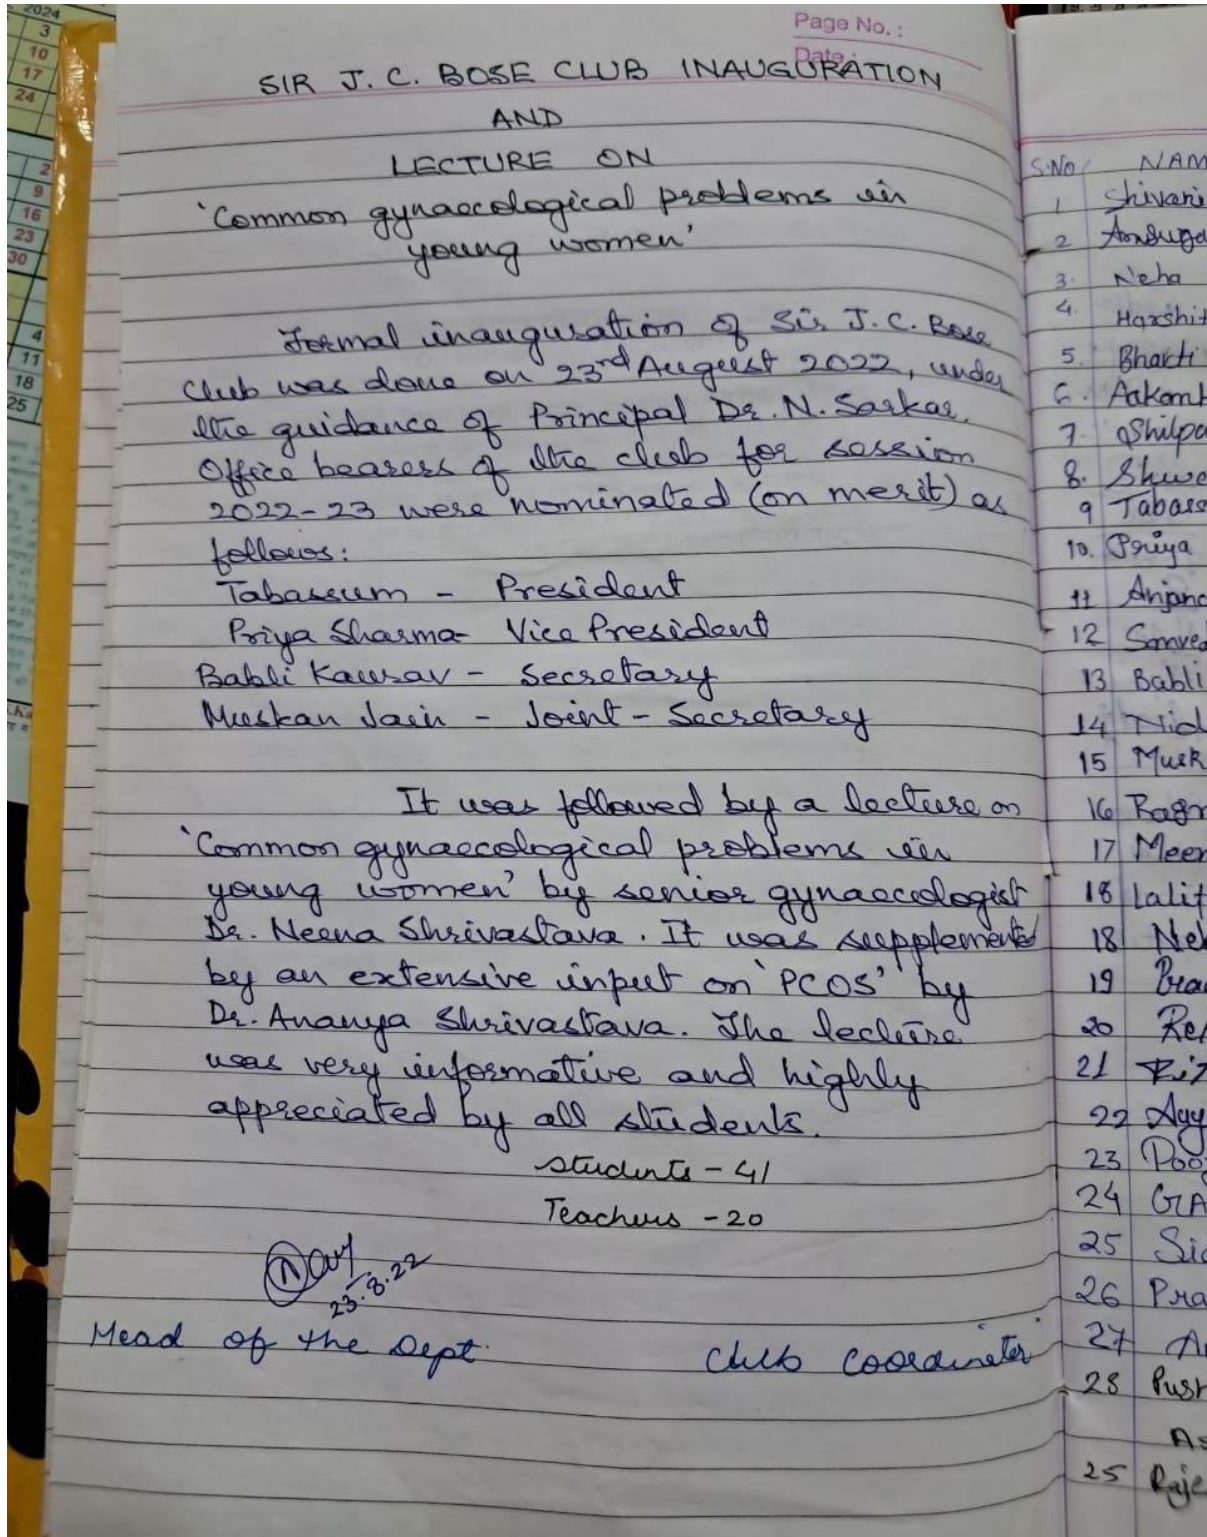 2024
3
10
17
24
2
9
16
23
30
4
11
18
25
Page No. :
Date :
SIR J. C. BOSE CLUB INAUGURATION
AND
LECTURE ON
'Common gynaecological problems in
young women'
Formal inauguration of Sir J. C. Bose
Club was done on 23rd August 2022, under
the guidance of Principal Dr. N. Sarkar.
Office bearers of the club for session
2022-23 were nominated (on merit) as
follows:
Tabassum - President
Priya Sharma - Vice President
Babli Kaurav - Secretary
Muskan Jain - Joint - Secretary
It was followed by a lecture on
'Common gynaecological problems in
young women' by senior gynaecologist
Dr. Neena Shrivastava. It was supplemented
by an extensive input on 'PCOS' by
Dr. Ananya Shrivastava. The lecture
was very informative and highly
appreciated by all students.
Students - 41
Teachers - 20
23.8.22
Head of the Dept.
Club Coordinator
S.No NAM
1 Shivani
2
3. Neha
4. Harshit
5. Bharti
6.
7. Shilpa
8. Shwe
9 Tabass
10. Priya
11 Anjana
12
13 Babli
14 Nid
15 Musk
16 Ragn
17 Meen
18 Lalit
18 Neh
19
20
21
22
23 Poo
24
25
26 Pra
27
28 Push
As
25 Raje